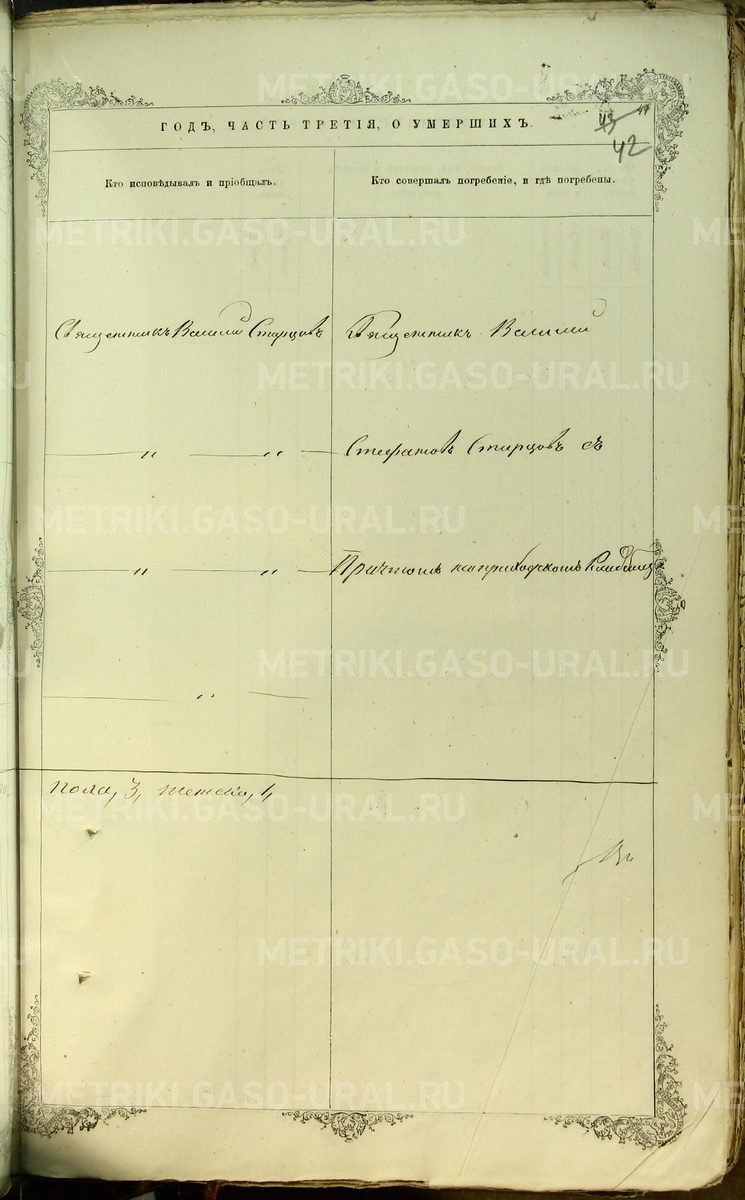 ГОДЪ, ЧАСТЬ ТРЕТІЯ, О УМЕРШИХЪ.
42
Кто исповѣдывалъ и пріобщалъ.
Кто совершалъ погребеніе, и гдѣ погребены.
Священникъ Василій Старцовъ
Священникъ Василій
— " — " —
Стефановъ Старцовъ съ
— " — " —
Причтомъ на приходскомъ Кладбищѣ
— " —
пола, 3, женска, 1,
METRIKI.GASO-URAL.RU